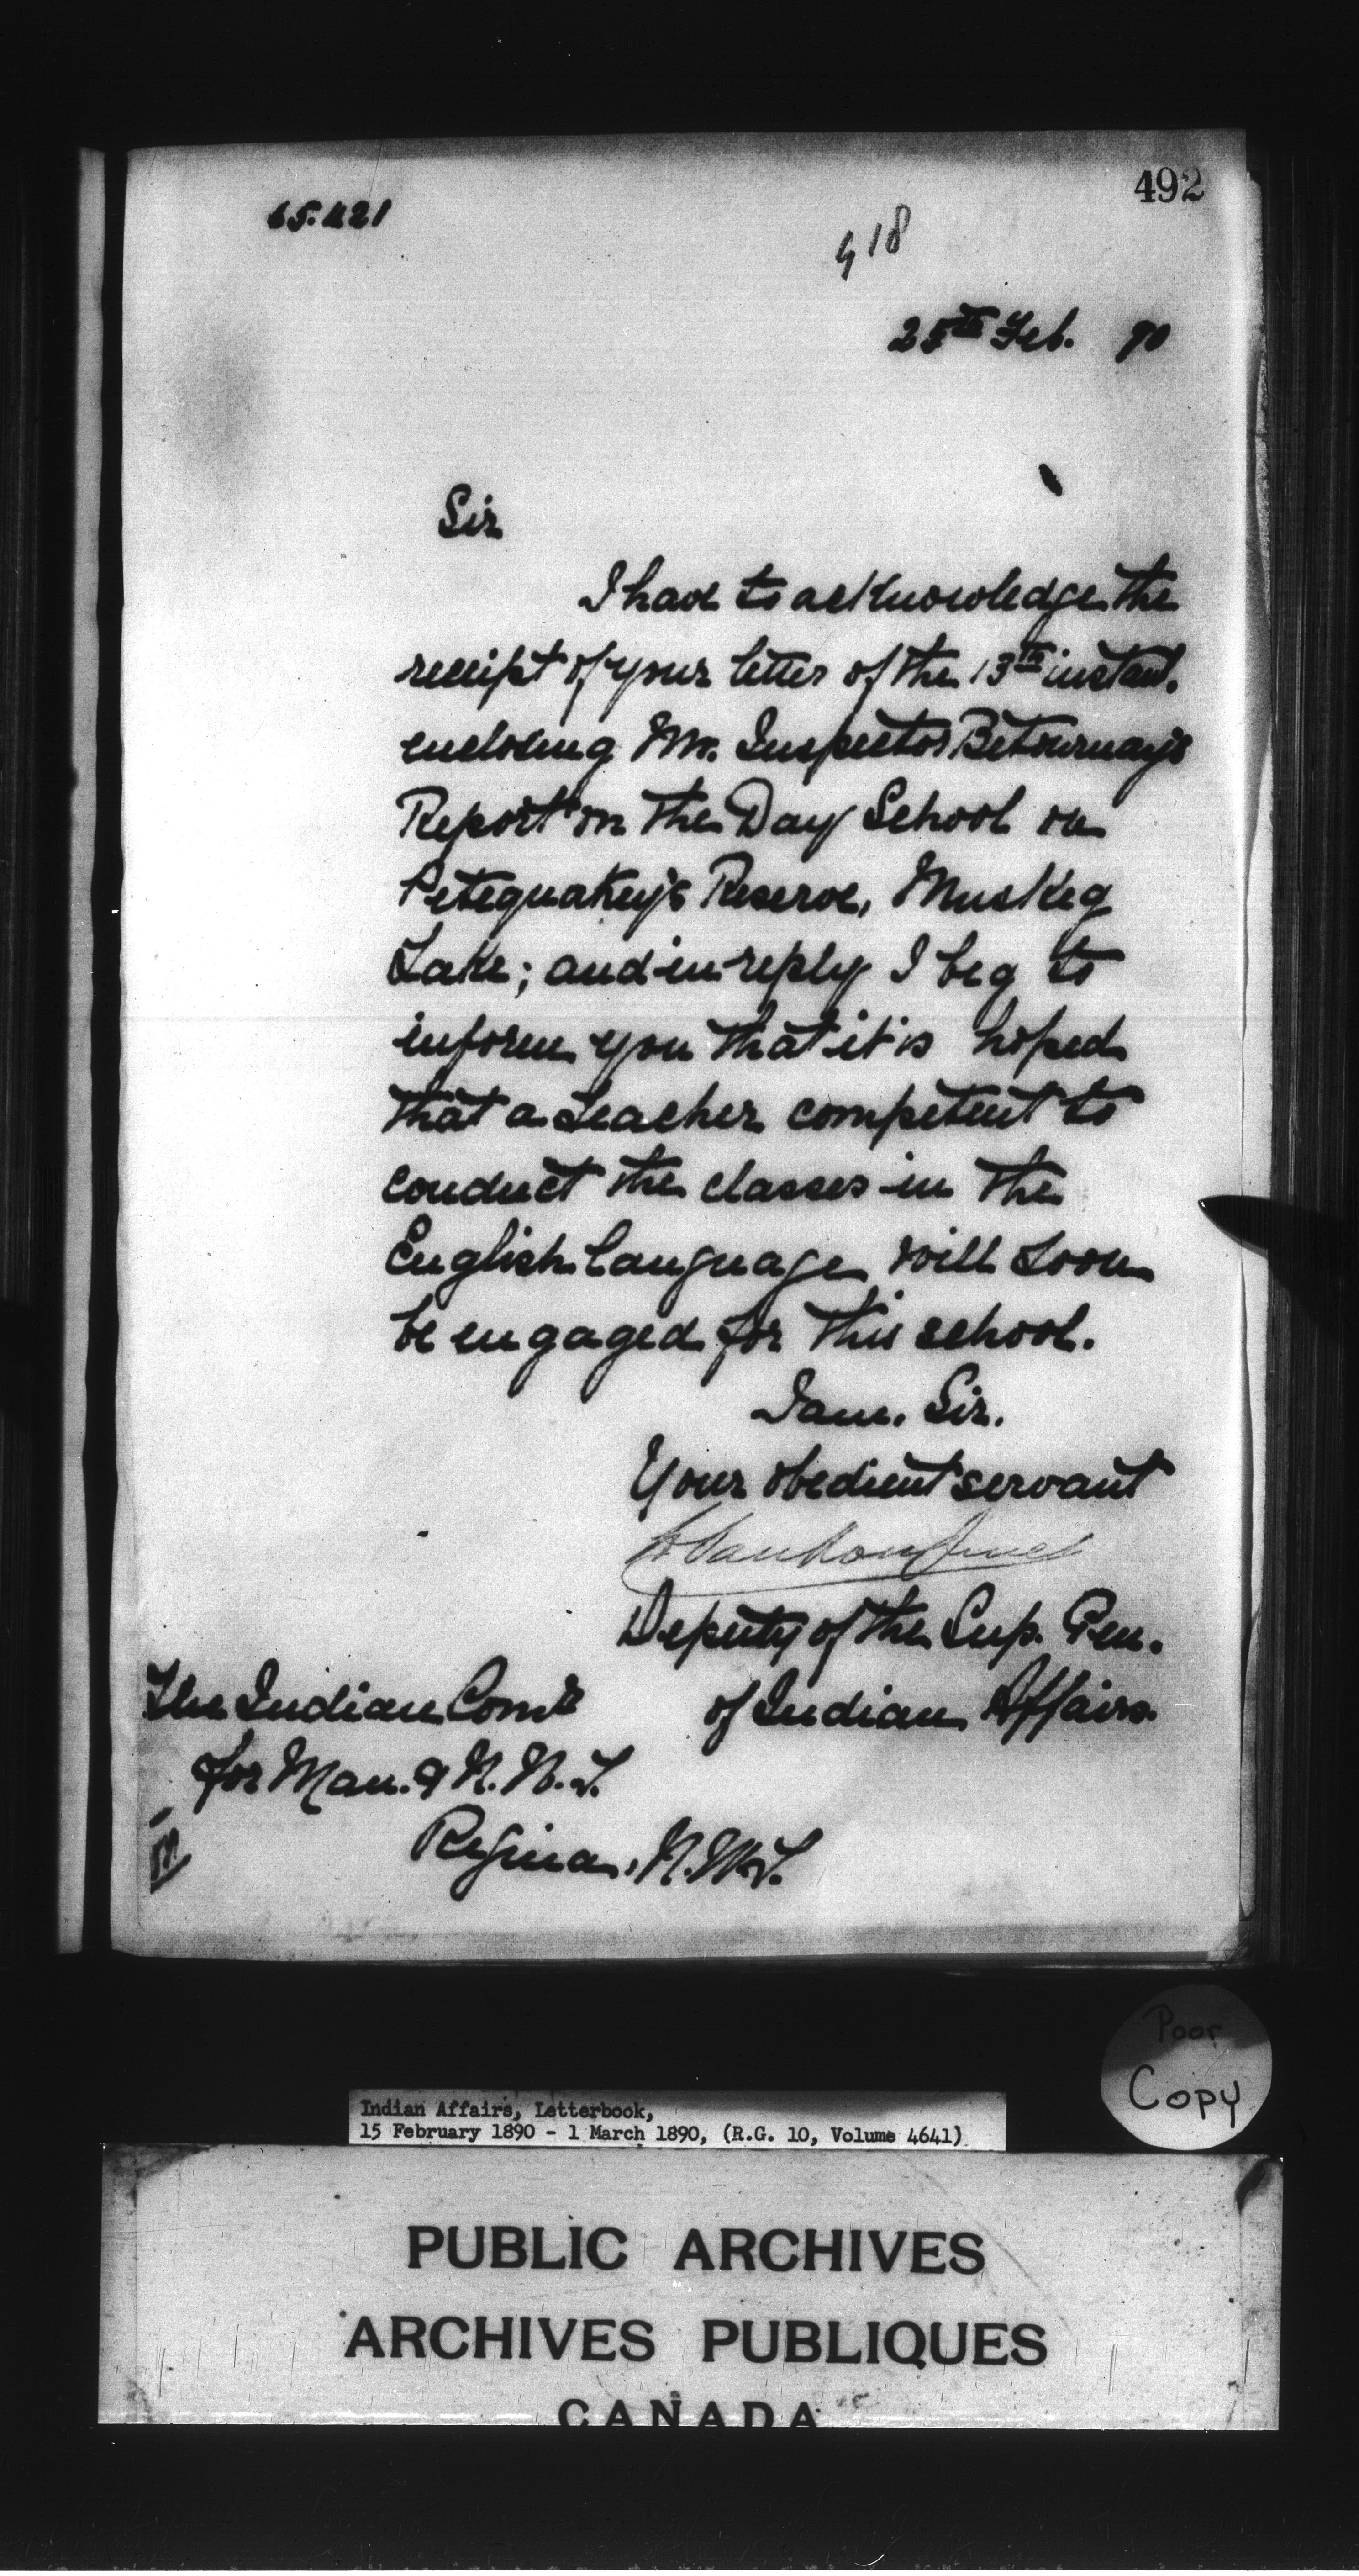 492
65.421
418
25th Feb. 90
Sir
I have to acknowledge the
receipt of your letter of the 13th instant.
enclosing Mr. Inspector Betournay's
Report on the Day School on
Petequakey's Reserve, Muskeg
Lake; and in reply I beg to
inform you that it is hoped
that a teacher competent to
conduct the classes in the
English language will soon
be engaged for this school.
I am. Sir.
Your obedient servant
L Vankoughnet
Deputy of the Sup. Gen.
of Indian Affairs.
The Indian Comr
for Man. & N.W.T.
Regina, N.W.T.
Poor
Copy
Indian Affairs, Letterbook,
15 February 1890 - 1 March 1890, (R.G. 10, Volume 4641)
PUBLIC ARCHIVES
ARCHIVES PUBLIQUES
CANADA